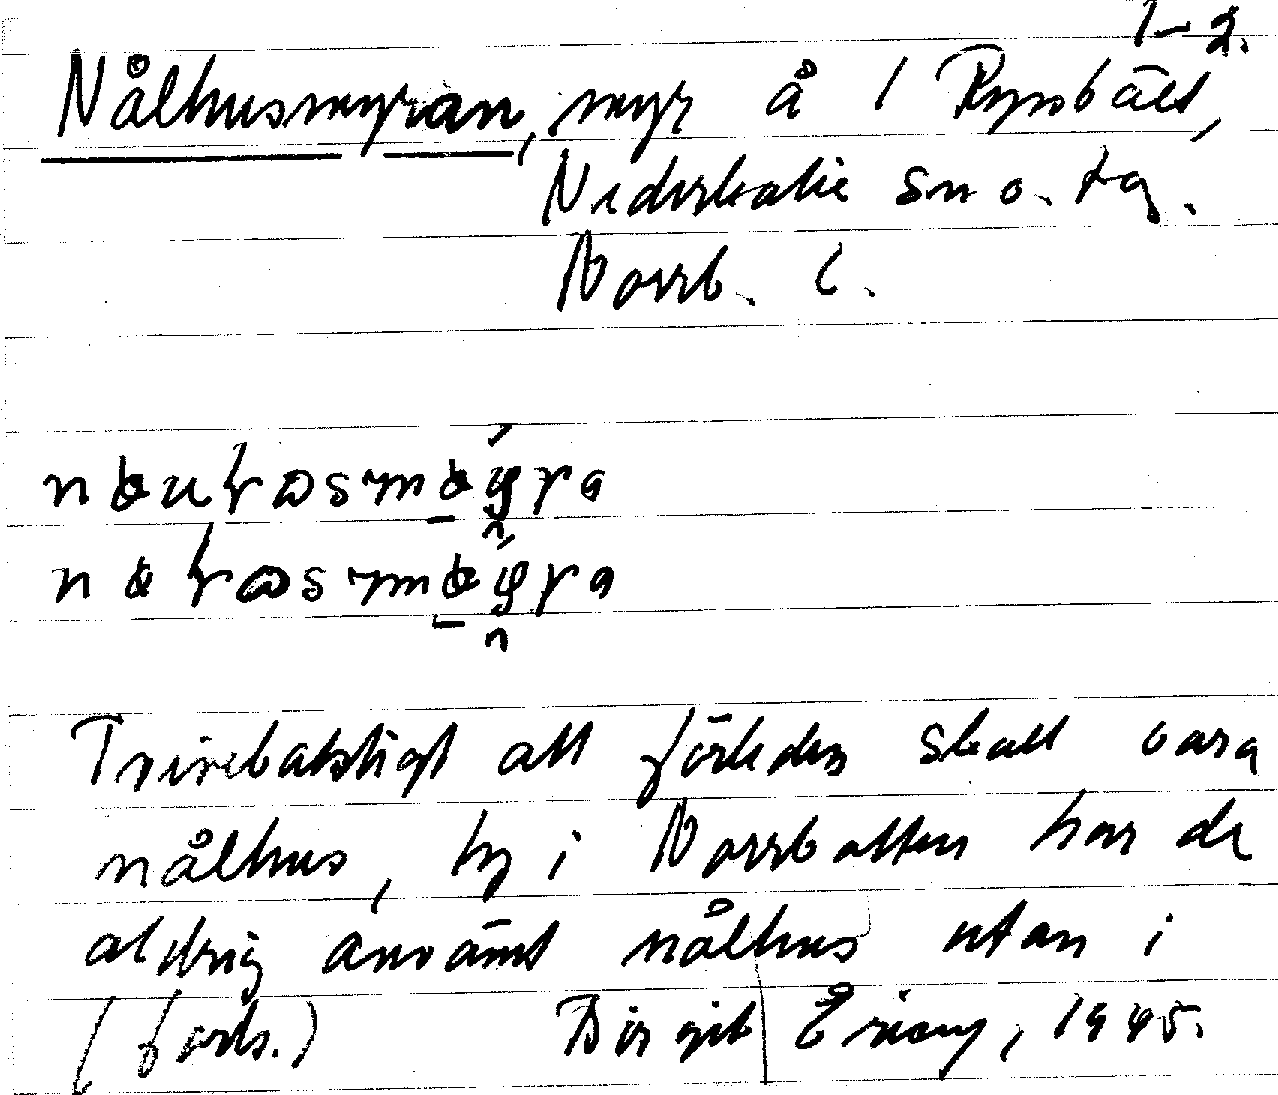 1-2.
Nålhusmyran, myr å 1 Rymbält,
Nederkalix sn o. tg.
Norrb. l.
Tvivelaktigt att förleden skall vara
nålhus, ty i Norrbotten har de
aldrig använt nålhus utan i
(forts.) Birgit Ericng, 1945.